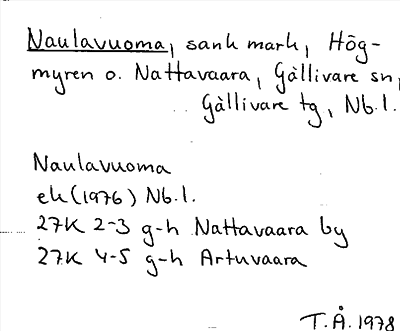 Naulavuoma, sank mark, Hög-
myren o. Nattavaara, Gällivare sn,
Gällivare tg, Nb.l.
Naulavuoma
ek (1976) Nb.l.
27K 2-3 g-h Nattavaara by
27K 4-5 g-h Artuvaara
T.Å. 1978